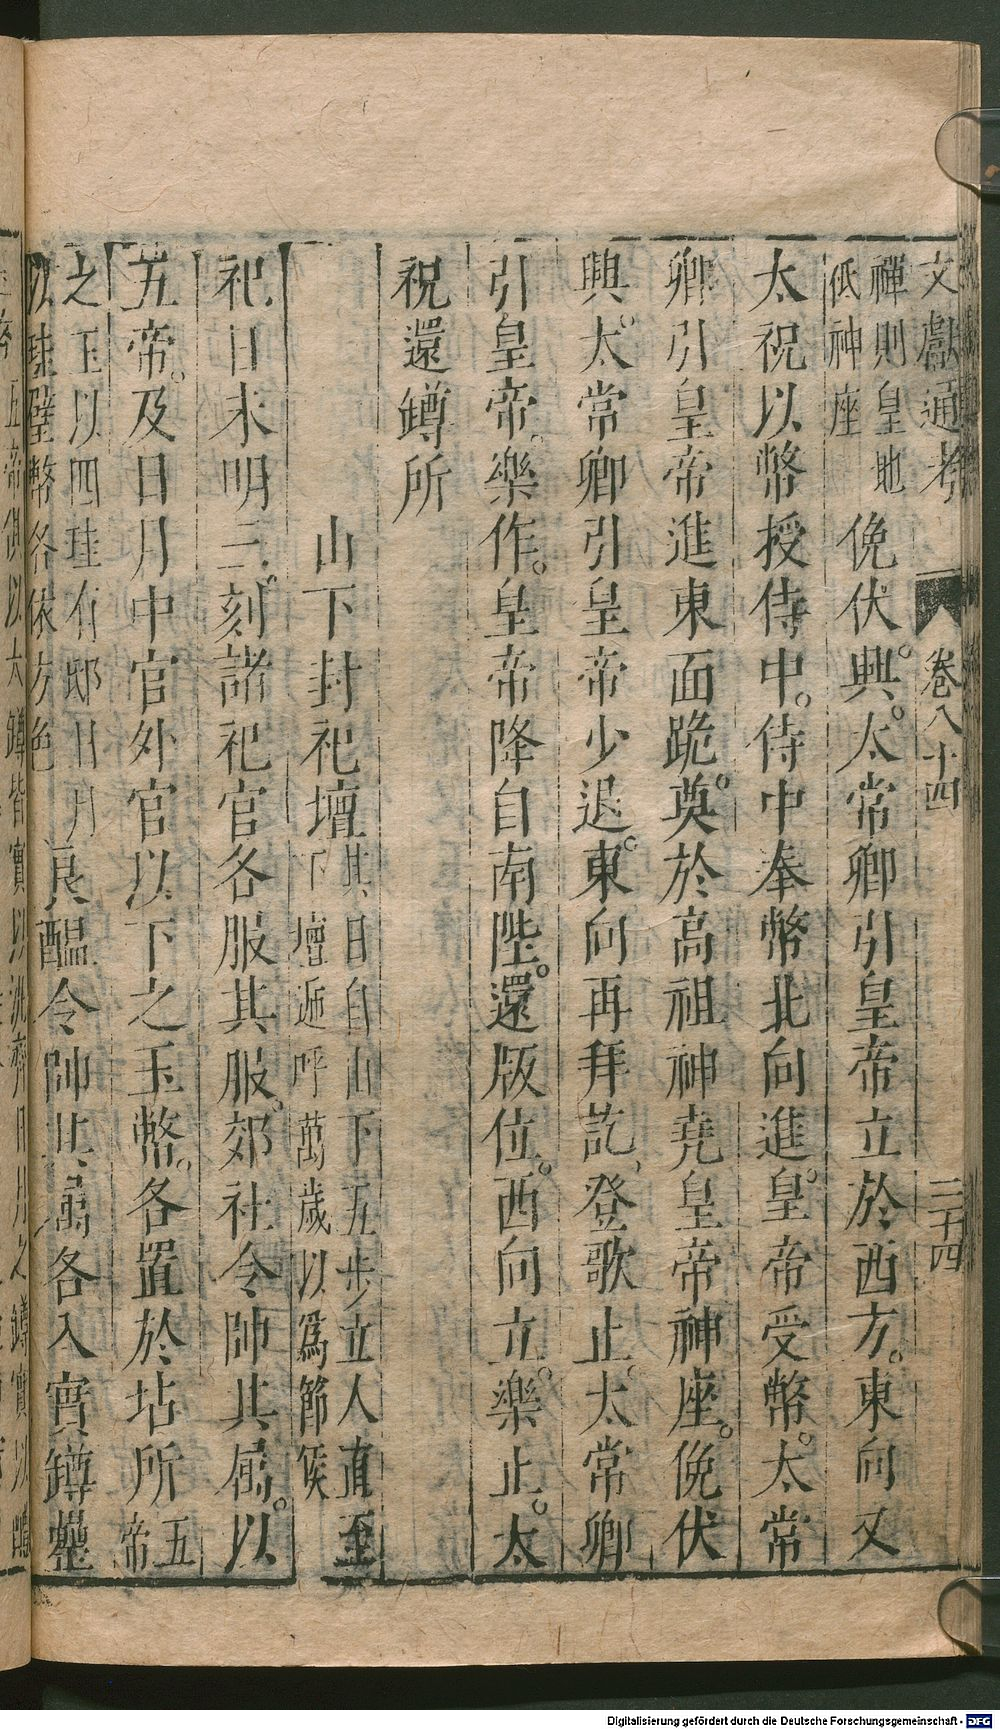 文獻通考 卷八十四 二十四
禪則皇地
低神座
俛伏興。太常卿引皇帝立於西方。東向又
太祝以幣授侍中。侍中奉幣北向進。皇帝受幣。太常
卿引皇帝進東面跪奠於高祖神堯皇帝神座。俛伏
興。太常卿引皇帝少退。東向再拜訖、登歌止。太常卿
引皇帝。樂作。皇帝降自南陛。還版位。西向立。樂止。太
祝還罇所
山下封祀壇
其日自山下五步立人直至
下壇逓呼萬歲以爲節候
祀日未明三刻諸祀官各服其服。郊社令帥其屬。以
五帝。及日月中官外官以下之玉幣。各置於坫所
五
帝
之玉以四珪有邸日月
以珪璧幣各依方色
良醞令帥其屬各入實罇罍
五帝俱以太罇皆實以汎齊日月之罇實以醴
Digitalisierung gefördert durch die Deutsche Forschungsgemeinschaft - DFG